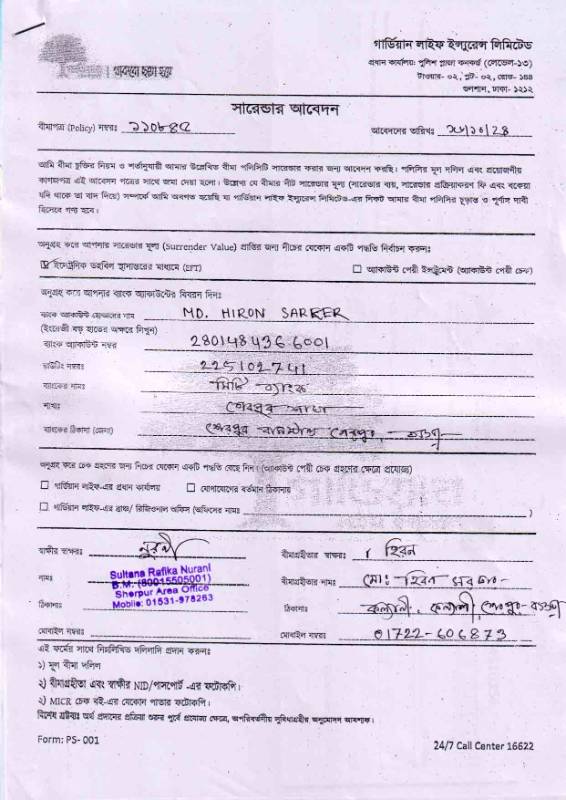 গার্ডিয়ান লাইফ ইন্স্যুরেন্স লিমিটেড
প্রধান কার্যালয়: পুলিশ প্লাজা কনকর্ড (লেভেল-১৩)
টাওয়ার- ০২, প্লট- ০২, রোড- ১৪৪
গুলশান, ঢাকা- ১২১২
সারেন্ডার আবেদন
বীমাপত্র (Policy) নম্বরঃ
আবেদনের তারিখঃ
আমি বীমা চুক্তির নিয়ম ও শর্তানুযায়ী আমার উল্লেখিত বীমা পলিসিটি সারেন্ডার করার জন্য আবেদন করছি। পলিসির মূল দলিল এবং প্রয়োজনীয়
কাগজপত্র এই আবেদন পত্রের সাথে জমা দেয়া হলো। উল্লেখ্য যে বীমার নীট সারেন্ডার মূল্য (সারেন্ডার ব্যয়, সারেন্ডার প্রক্রিয়াকরণ ফি এবং বকেয়া
যদি থাকে তা বাদ দিয়ে) সম্পর্কে আমি অবগত হয়েছি যা গার্ডিয়ান লাইফ ইন্স্যুরেন্স লিমিটেড-এর নিকট আমার বীমা পলিসির চূড়ান্ত ও পূর্ণাঙ্গ দাবী
হিসেবে গণ্য হবে।
অনুগ্রহ করে আপনার সারেন্ডার মূল্য (Surrender Value) প্রাপ্তির জন্য নীচের যেকোন একটি পদ্ধতি নির্বাচন করুনঃ
ইলেক্ট্রনিক তহবিল স্থানান্তরের মাধ্যমে (EFT)
অ্যাকাউন্ট পেয়ী ইন্সট্রুমেন্ট (অ্যাকাউন্ট পেয়ী চেক)
অনুগ্রহ করে আপনার ব্যাংক অ্যাকাউন্টের বিবরন দিনঃ
ব্যাংক অ্যাকাউন্ট হোল্ডারের নাম MD. HIRON SARKER
(ইংরেজী বড় হাতের অক্ষরে লিখুন)
ব্যাংক অ্যাকাউন্ট নম্বর 2801484366001
রাউটিং নম্বরঃ 225102741
ব্যাংকের নামঃ সিটি ব্যাংক
শাখাঃ শেরপুর শাখা
ব্যাংকের ঠিকানা (জেলা) শেরপুর বাসস্ট্যান্ড শেরপুর, বগুড়া
অনুগ্রহ করে চেক গ্রহণের জন্য নিচের যেকোন একটি পদ্ধতি বেছে নিন। (অ্যাকাউন্ট পেয়ী চেক গ্রহণের ক্ষেত্রে প্রযোজ্য)
গার্ডিয়ান লাইফ-এর প্রধান কার্যালয়
যোগাযোগের বর্তমান ঠিকানায়
গার্ডিয়ান লাইফ-এর ব্রাঞ্চ/ রিজিওনাল অফিস (অফিসের নামঃ )
স্বাক্ষীর স্বাক্ষরঃ
বীমাগ্রহীতার স্বাক্ষরঃ হিরন
নামঃ Sultana Rafika Nurani
B.M. (80015505001)
Sherpur Area Office
Moblie: 01531-978263
বীমাগ্রহীতার নামঃ মোঃ হিরন সরকার
ঠিকানাঃ
ঠিকানাঃ কল্যানী, কল্যানী, শেরপুর-বগুড়া
মোবাইল নম্বরঃ
মোবাইল নম্বরঃ 01722-606873
এই ফর্মের সাথে নিম্নলিখিত দলিলাদি প্রদান করুনঃ
১) মূল বীমা দলিল
২) বীমাগ্রহীতা এবং স্বাক্ষীর NID/পাসপোর্ট -এর ফটোকপি।
২) MICR চেক বই-এর যেকোন পাতার ফটোকপি।
বিশেষ দ্রষ্টব্যঃ অর্থ প্রদানের প্রক্রিয়া শুরুর পূর্বে প্রযোজ্য ক্ষেত্রে, অপরিবর্তনীয় সুবিধাগ্রহীর অনুমোদন আবশ্যক।
Form: PS- 001
24/7 Call Center 16622